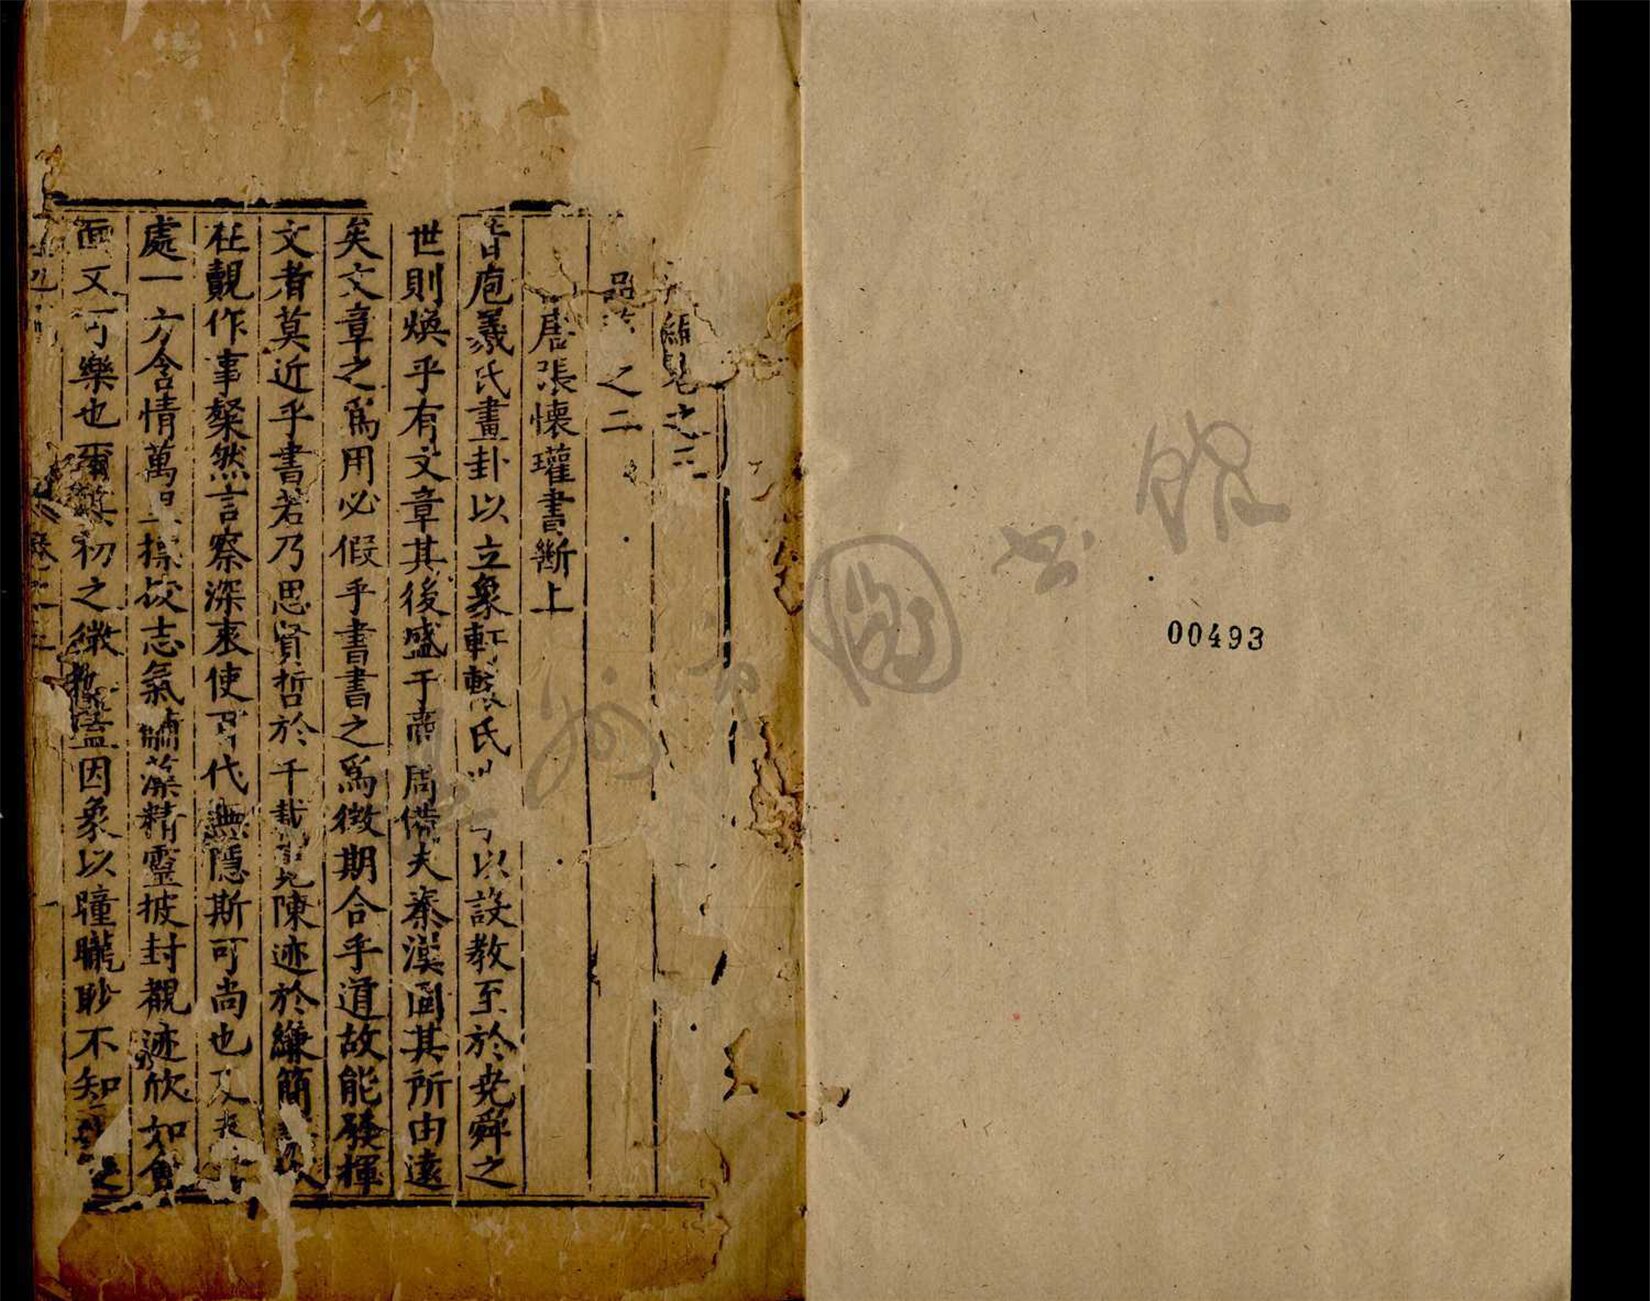 編卷之三
品 之二
唐張懷瓘書斷上
昔庖羲氏畫卦以立象軒轅氏 以設教至於尭舜之
世則煥乎有文章其後盛于商周備夫秦漢固其所由遠
矣文章之爲用必假乎書書之爲徴期合乎道故能發揮
文者莫近乎書若乃思賢哲於千載覽陳迹於縑簡
在覿作事粲然言察深衷使可代無隱斯可尚也又
處一方含情萬里摽拔志氣黼藻精靈披封覩迹欣如會
面又可樂也爾其初之微 蓋因象以瞳矓眇不知
00493
圖書館